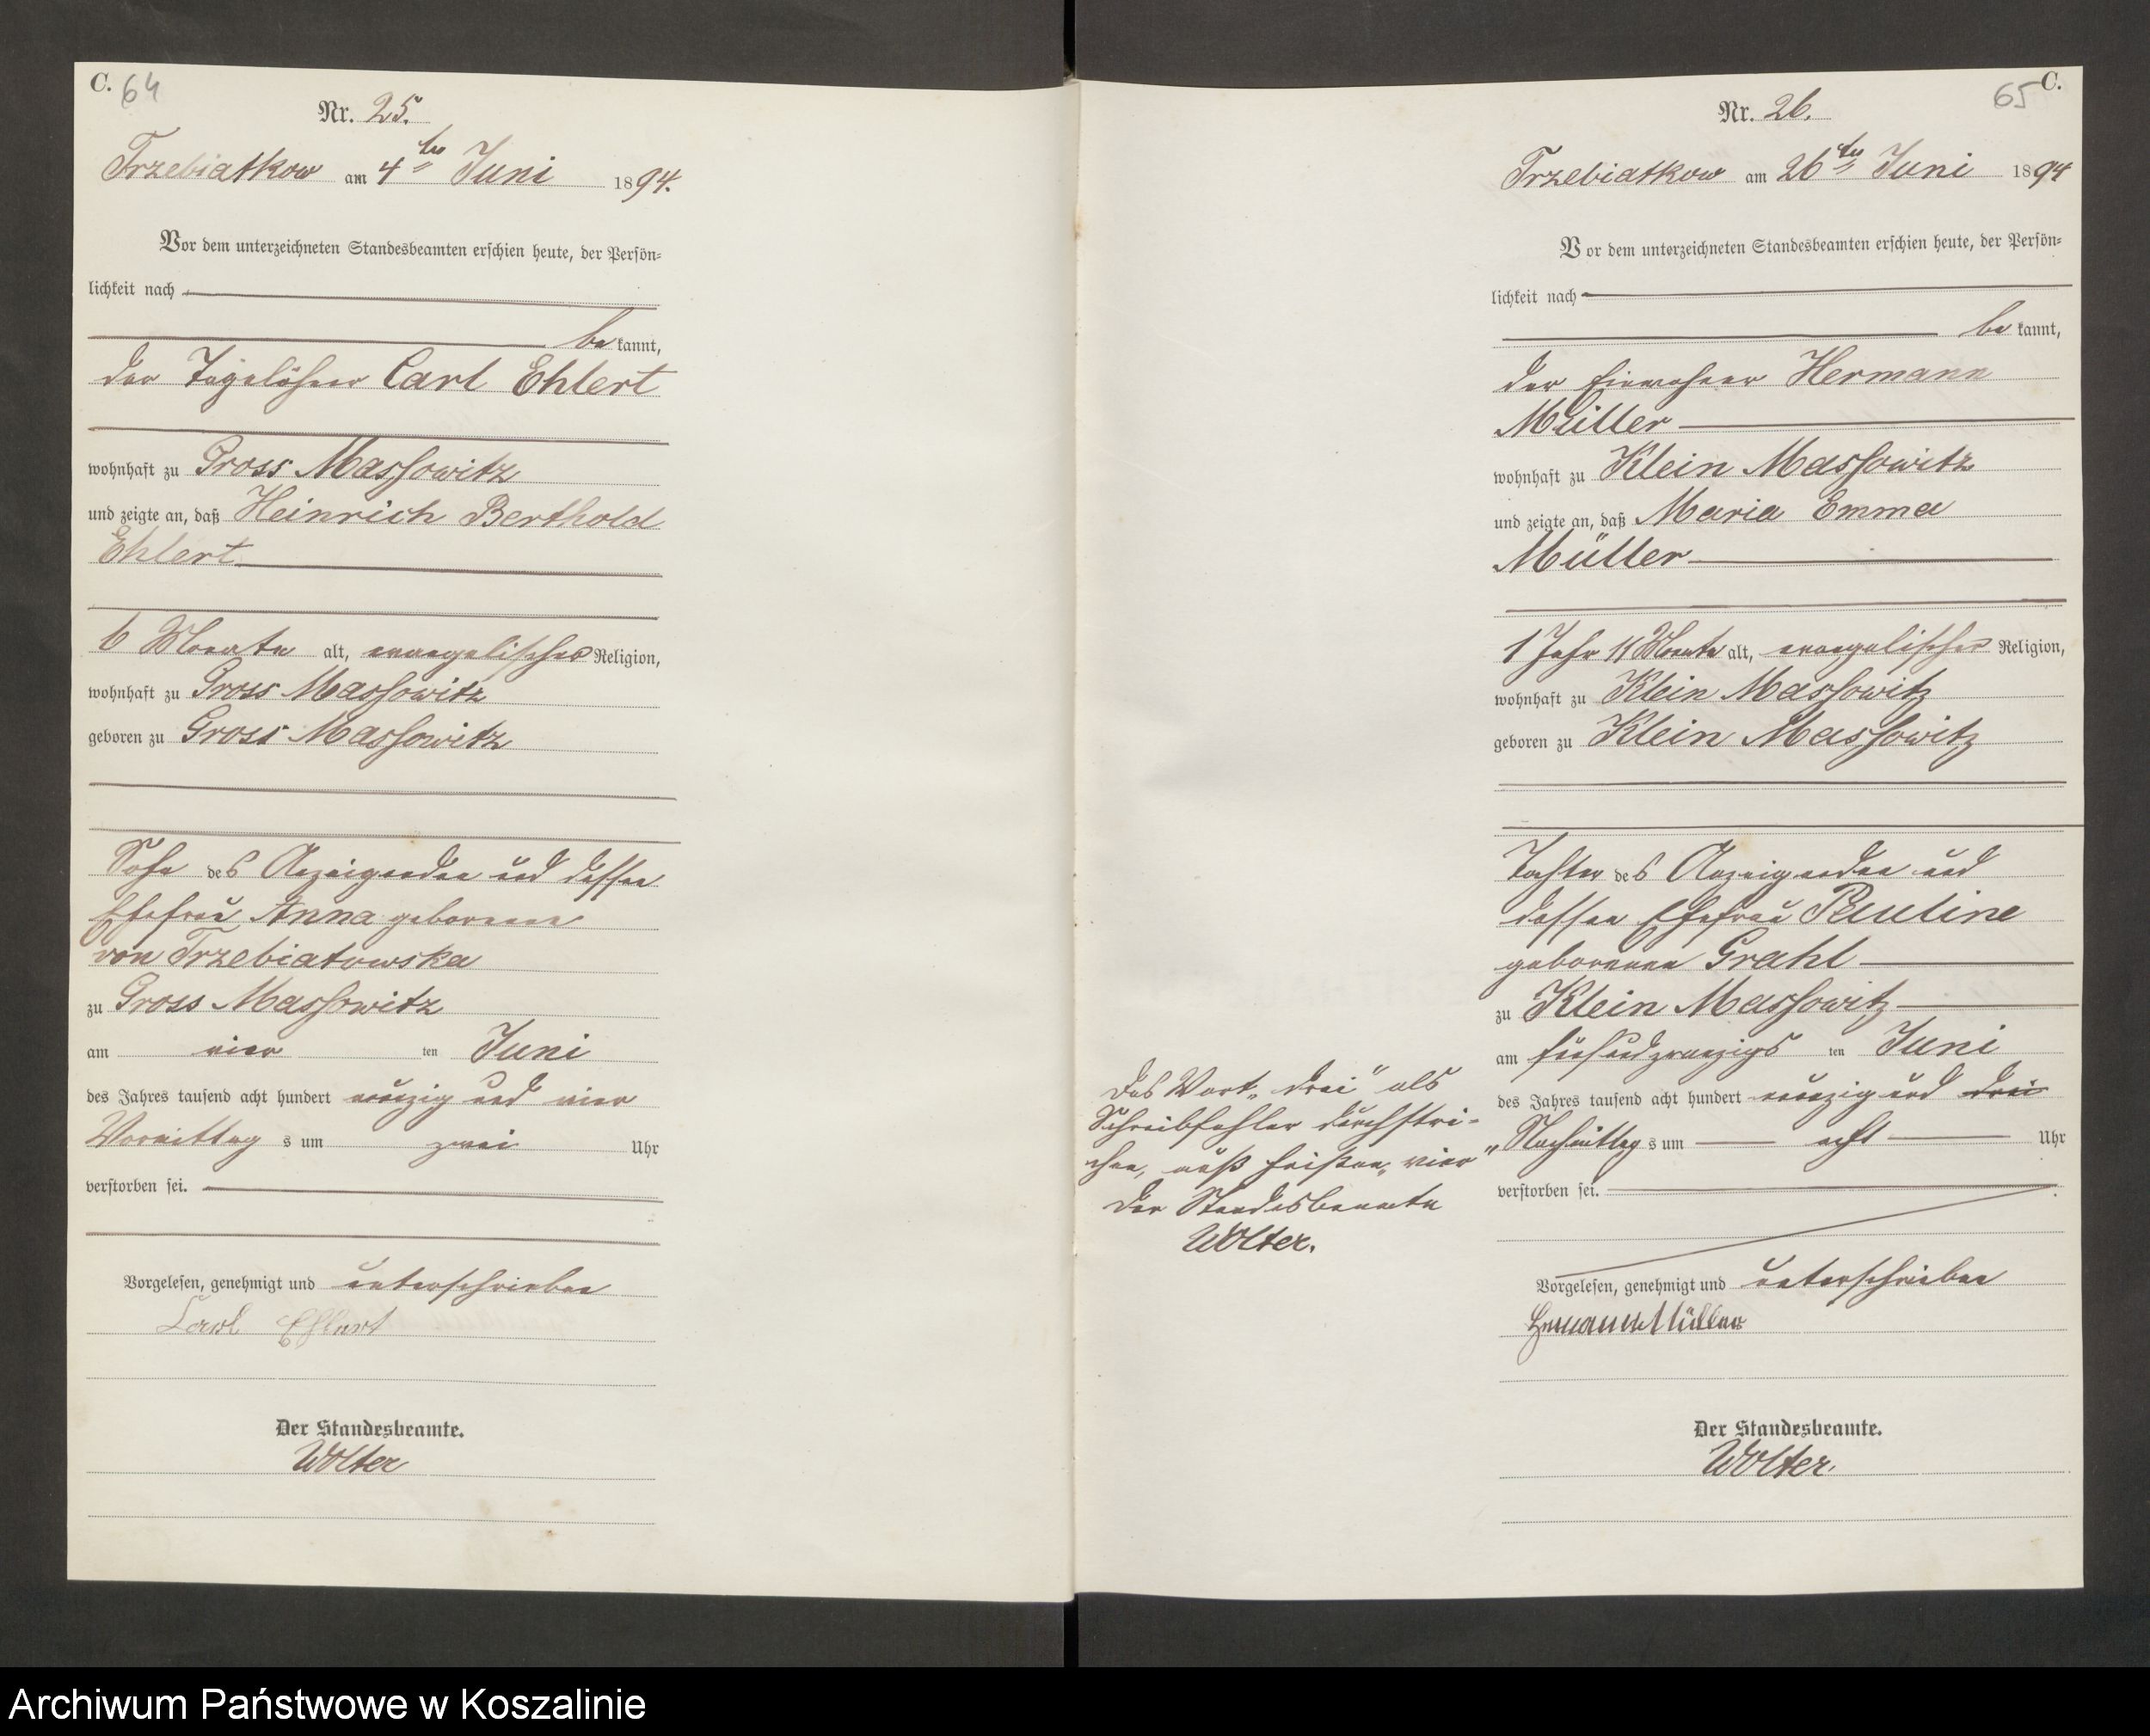 C. 64
Nr. 25.
Trzebiatkow am 4ten Juni 1894.
Vor dem unterzeichneten Standesbeamten erschien heute, der Persön-
lichkeit nach
be kannt,
der Tagelöhner Carl Ehlert
wohnhaft zu Gross Massowitz
und zeigte an, daß Heinrich Berthold
Ehlert
6 Monate alt, evangelischer Religion,
wohnhaft zu Gross Massowitz
geboren zu Gross Massowitz
Sohn des Anzeigenden und dessen
Ehefrau Anna geborenen
von Trzebiatowska
zu Gross Massowitz
am vier ten Juni
des Jahres tausend acht hundert neunzig und vier
Vormittag s um zwei Uhr
verstorben sei.
Vorgelesen, genehmigt und unterschrieben
Carl Ehlert
Der Standesbeamte.
Wolter
65 C.
Nr. 26.
Trzebiatkow am 26ten Juni 1894
Vor dem unterzeichneten Standesbeamten erschien heute, der Persön-
lichkeit nach
be kannt,
der Einwohner Hermann
Müller
wohnhaft zu Klein Massowitz
und zeigte an, daß Maria Emma
Müller
1 Jahr 11 Monate alt, evangelischer Religion,
wohnhaft zu Klein Massowitz
geboren zu Klein Massowitz
Tochter des Anzeigenden und
dessen Ehefrau Pauline
geborenen Grahl
zu Klein Massowitz
am fünfundzwanzigs ten Juni
des Jahres tausend acht hundert neunzig und drei
Nachmittag s um acht Uhr
verstorben sei.
Das Wort „drei" als
Schreibfehler durchstri-
chen, muß heißen „vier"
Der Standesbeamte
Wolter.
Vorgelesen, genehmigt und unterschrieben
Hermann Müller
Der Standesbeamte.
Wolter.
Archiwum Państwowe w Koszalinie